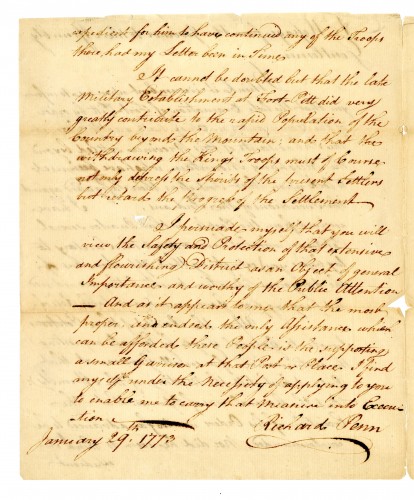 expedient for him to have continued any of the Troops
there, had my Letter been in Time.
It cannot be doubted but that the late
Military Establishment at Fort-Pitt did very
greatly contribute to the rapid Population of the
Country beyond the Mountain; and that the
withdrawing the Kings Troops must of Course
not only depress the Spirits of the present Settlers
but retard the Progress of the Settlement.
I persuade myself that you will
view the Safety and Protection of that extensive
and flourishing District as an Object of general
Importance and worthy of the Public Attention
— And as it appears to me that the most
proper and indeed the only Assistance which
can be afforded these People is the supporting
a small Garrison at that Post or Place. I find
myself under the Necessity of applying to you
to enable me to carry that Measure into Execu
tion
Richard Penn
January 29th 1773